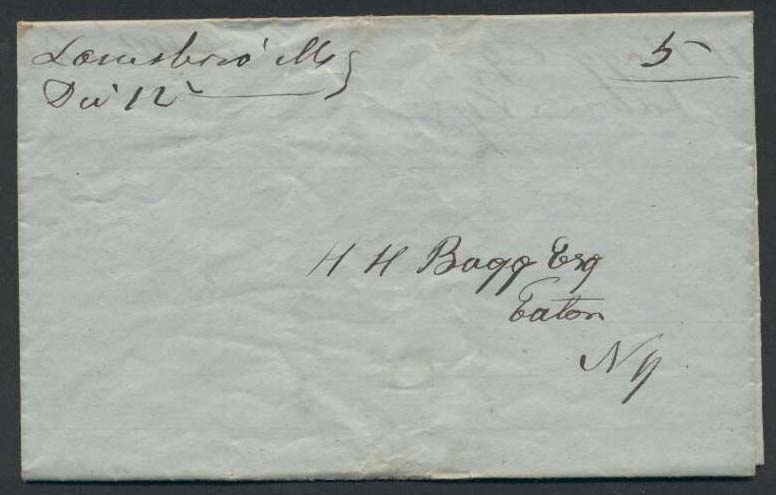 Lanesboro' Ms
5
Dec 12
H H Bagg Esq
Eaton
Ny